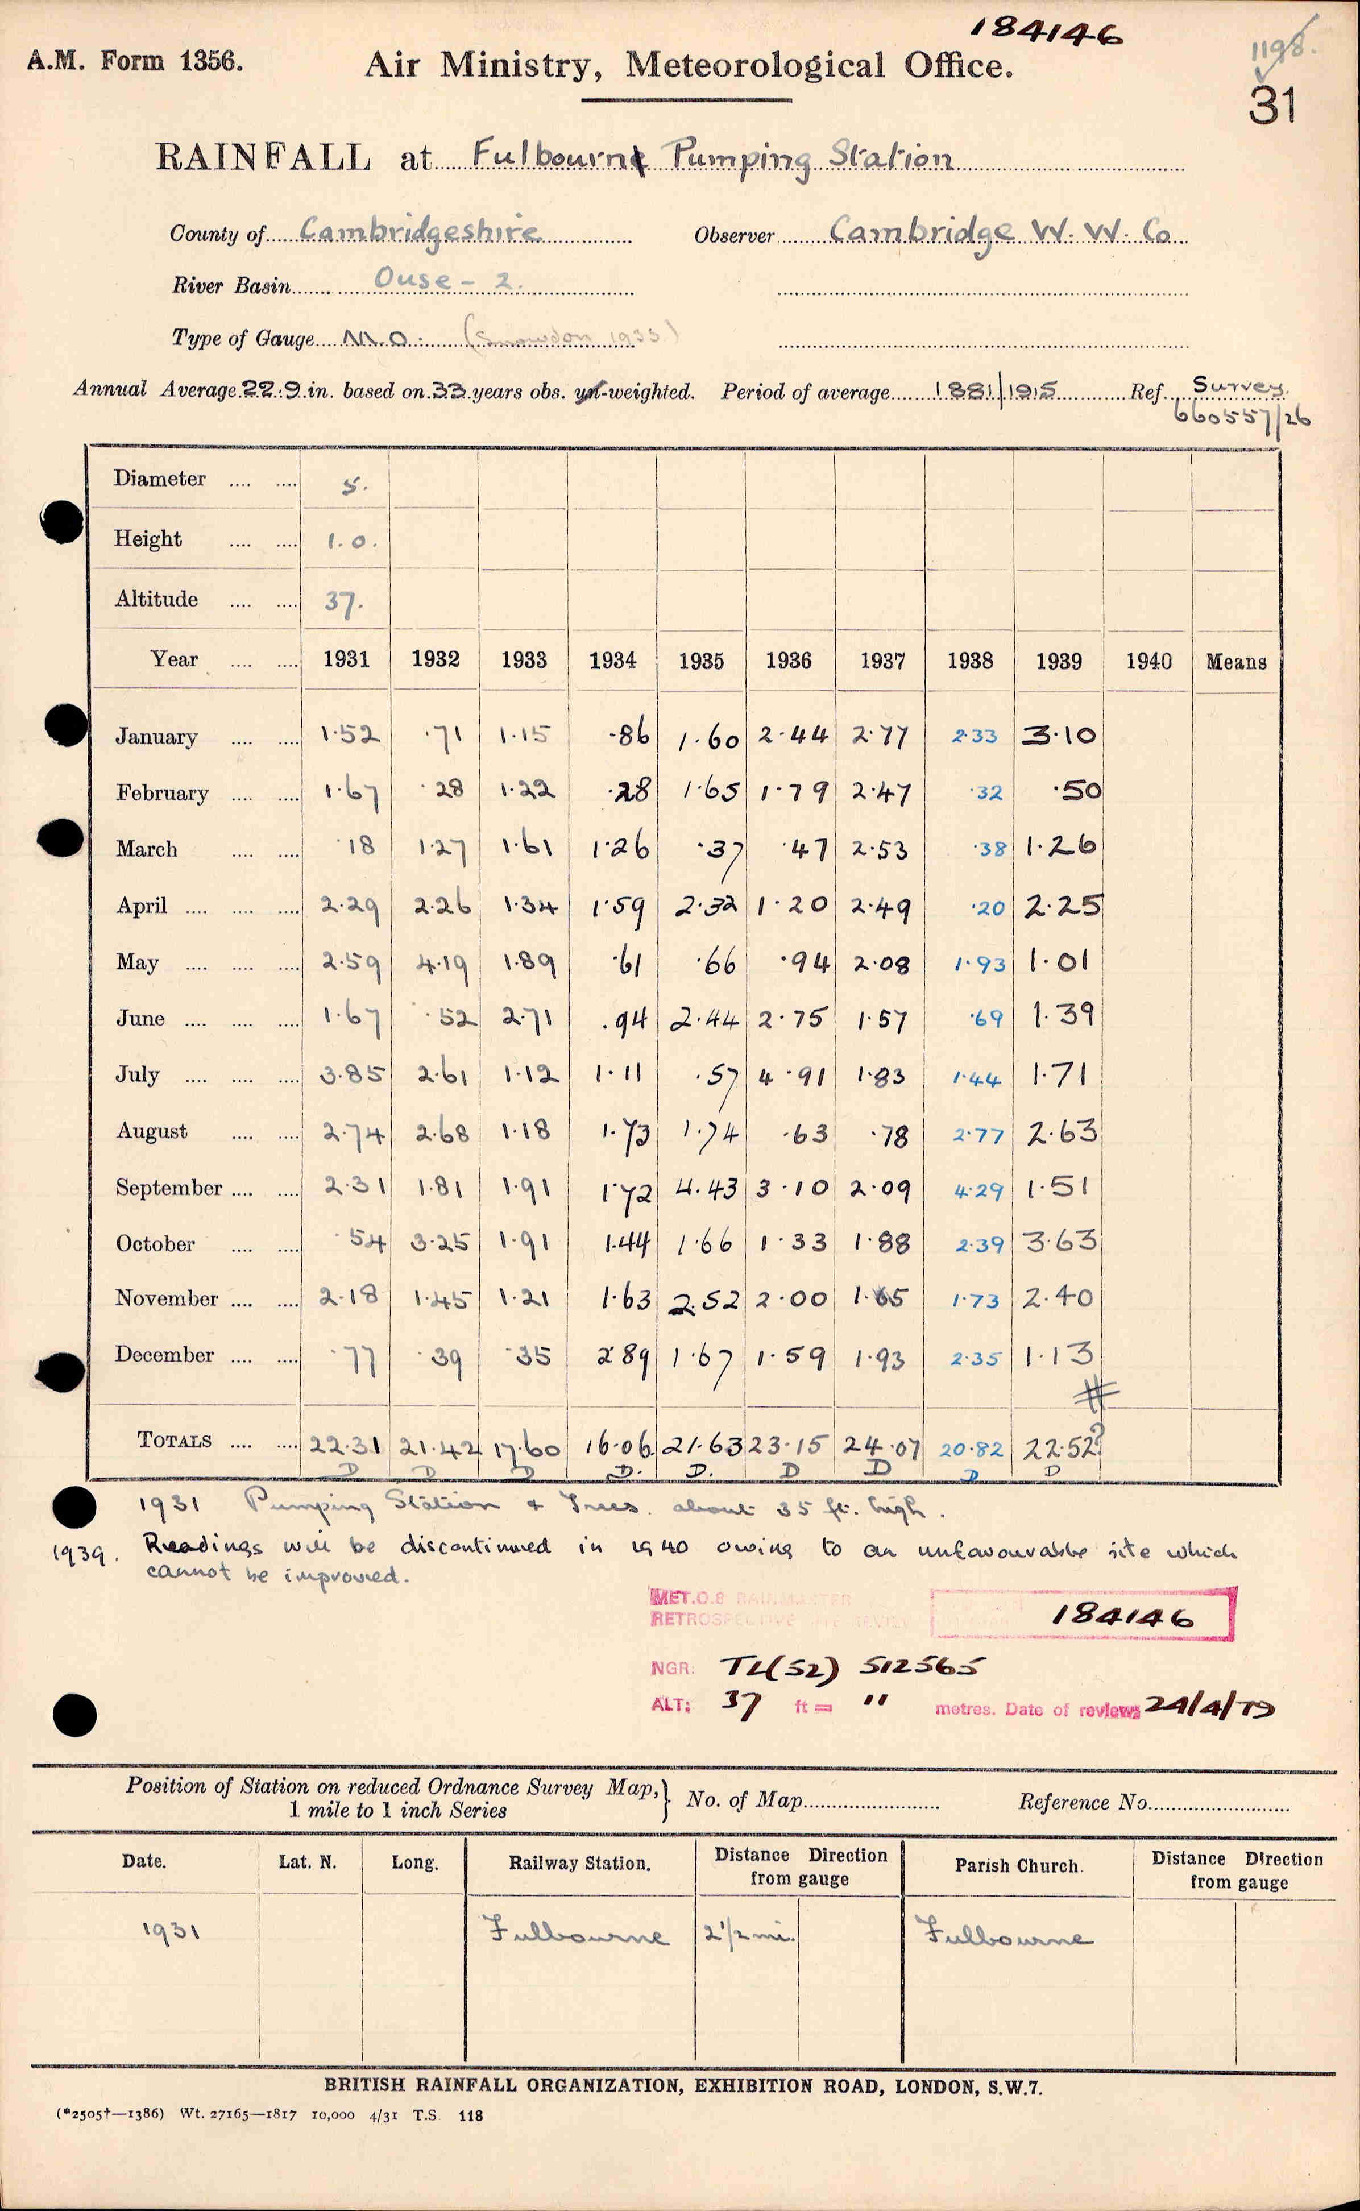 184146
A.M. Form 1356. Air Ministry, Meteorological Office. 1198.
31
RAINFALL at Fulbourne Pumping Station
County of Cambridgeshire Observer Cambridge W. W. Co
River Basin Ouse - 2.
Type of Gauge M.O. (Snowdon 1933)
Annual Average 22.9 in. based on 33 years obs. un-weighted. Period of average 1881/1915 Ref. Survey
660557/26
Diameter .... .... 5.
Height .... .... 1.0.
Altitude .... .... 37.
Year .... .... 1931 1932 1933 1934 1935 1936 1937 1938 1939 1940 Means
January .... .... 1.52 .71 1.15 .86 1.60 2.44 2.77 2.33 3.10
February .... .... 1.67 .28 1.22 .28 1.65 1.79 2.47 .32 .50
March .... .... .18 1.27 1.61 1.26 .37 .47 2.53 .38 1.26
April .... .... .... 2.29 2.26 1.34 1.59 2.32 1.20 2.49 .20 2.25
May .... .... .... 2.59 4.19 1.89 .61 .66 .94 2.08 1.93 1.01
June .... .... .... 1.67 .52 2.71 .94 2.44 2.75 1.57 .69 1.39
July .... .... .... 3.85 2.61 1.12 1.11 .57 4.91 1.83 1.44 1.71
August .... .... 2.74 2.68 1.18 1.73 1.74 .63 .78 2.77 2.63
September .... .... 2.31 1.81 1.91 1.72 4.43 3.10 2.09 4.29 1.51
October .... .... .54 3.25 1.91 1.44 1.66 1.33 1.88 2.39 3.63
November .... .... 2.18 1.45 1.21 1.63 2.52 2.00 1.65 1.73 2.40
December .... .... .77 .39 .35 2.89 1.67 1.59 1.93 2.35 1.13
#
TOTALS .... .... 22.31 21.42 17.60 16.06 21.63 23.15 24.07 20.82 22.52?
D D D D. D. D D D D
1931 Pumping Station & Trees about 35 ft. high.
1939. Readings will be discontinued in 1940 owing to an unfavourable site which
cannot be improved.
MET.O.8 RAINMASTER
RETROSPECTIVE 184146
NGR: TL(52) 512565
ALT: 37 ft = " metres. Date of reviews 24/4/79
Position of Station on reduced Ordnance Survey Map,} No. of Map Reference No.
1 mile to 1 inch Series
Date. Lat. N. Long. Railway Station. Distance Direction from gauge Parish Church. Distance Direction from gauge
1931 Fulbourne 2 1/2 mi. Fulbourne
BRITISH RAINFALL ORGANIZATION, EXHIBITION ROAD, LONDON, S.W.7.
(*2505†—1386) Wt. 27165—1817 10,000 4/31 T.S. 118